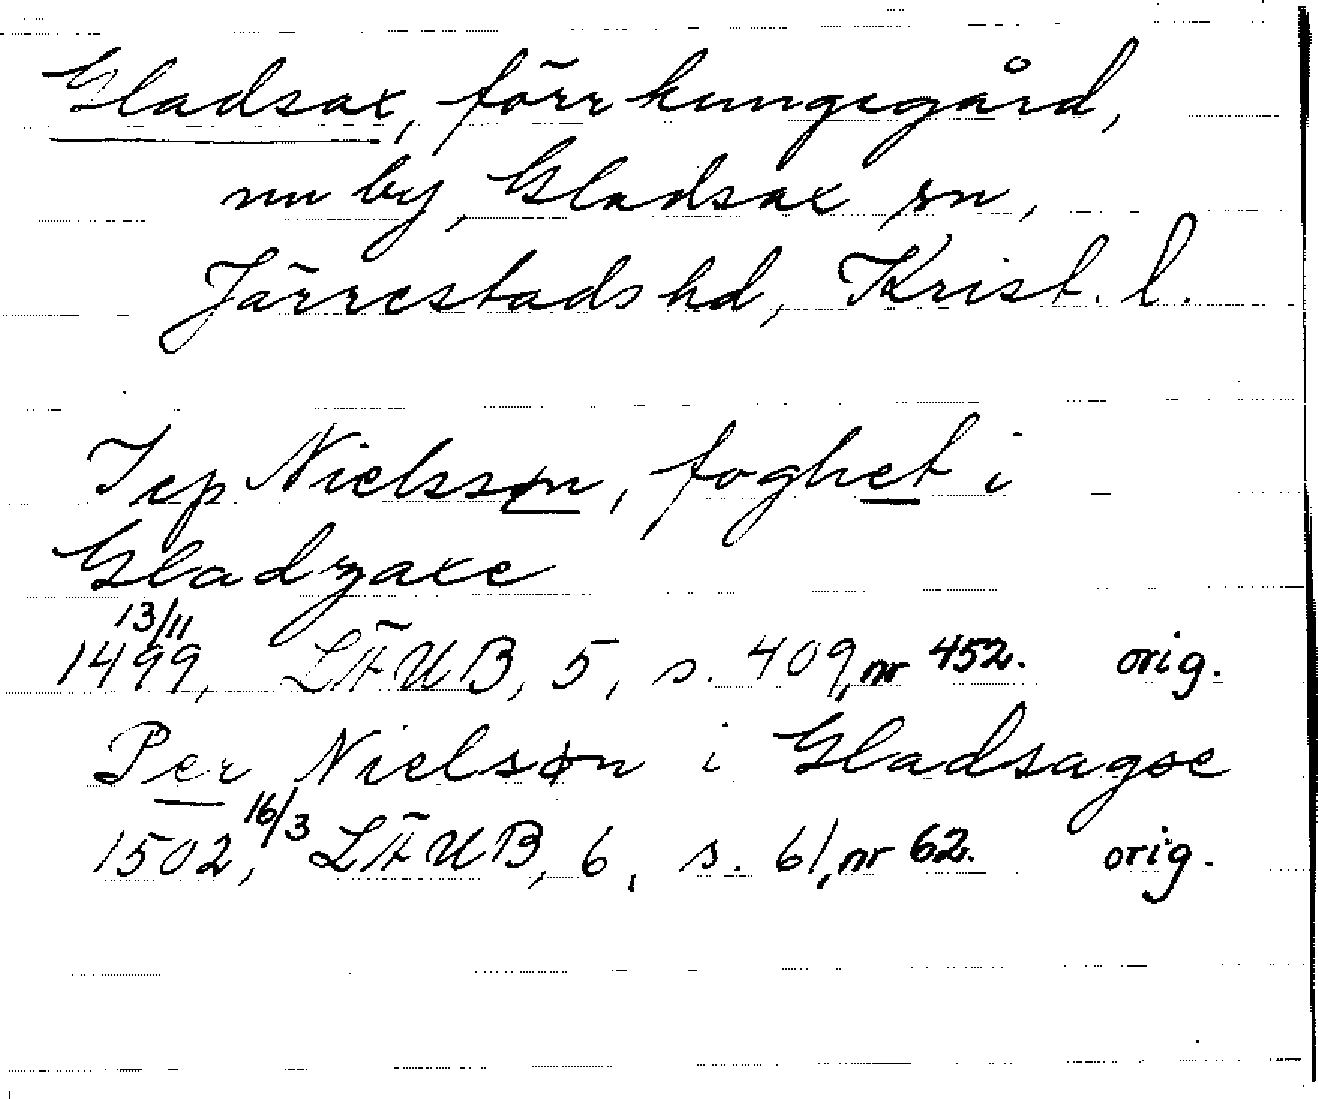 Gladsax, förr kungsgård,
nu by, Gladsax sn,
Järrestads hd, Krist. l.
Jep Nielssøn, foghet i
Gladzaxe
13/11
1499, LÄUB, 5, s. 409, nr 452. orig.
Per Nielsøn i Gladsagse
16/3
1502, LÄUB, 6, s. 61, nr 62. orig.